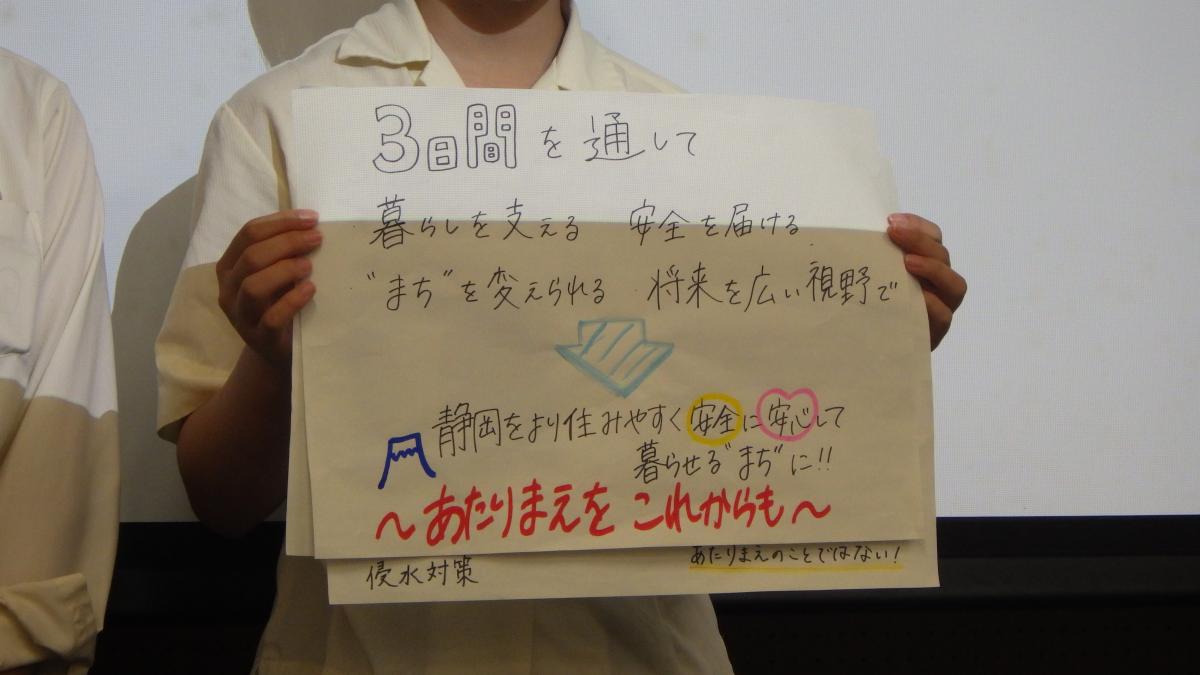 3日間を通して
暮らしを支える 安全を届ける
"まち"を変えられる 将来を広い視野で
静岡をより住みやすく安全に安心して
暮らせる"まち"に!!
～あたりまえを これからも～
侵水対策 あたりまえのことではない!